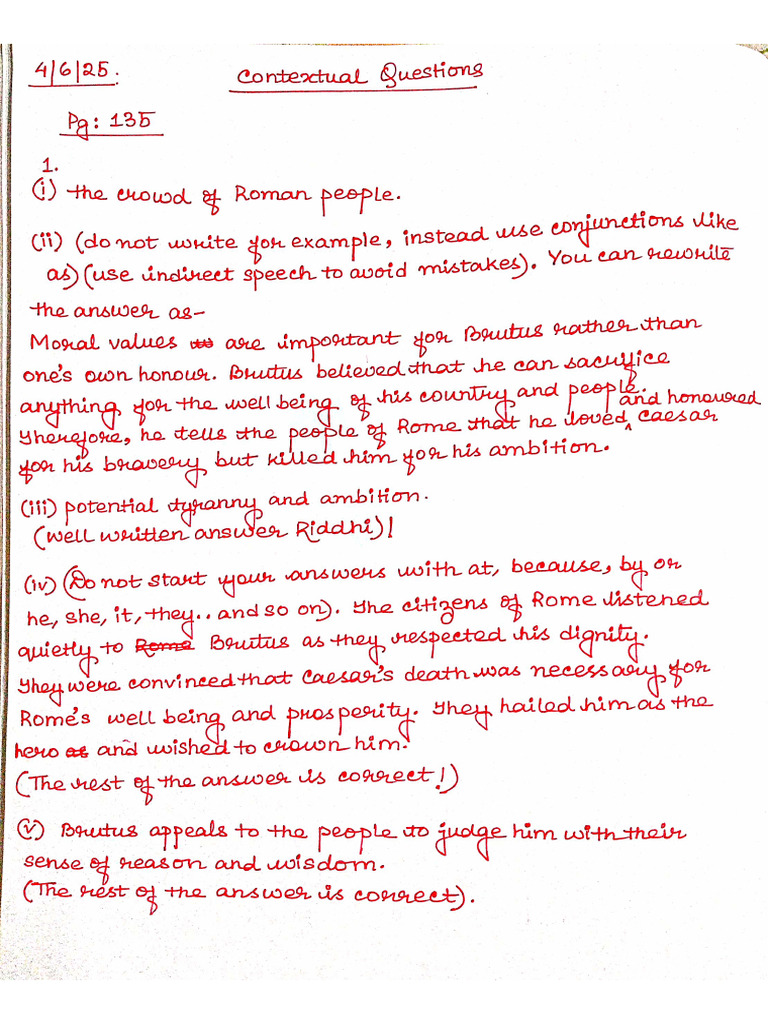 4/6/25. Contextual Questions
Pg: 135
1.
(i) the crowd of Roman people.
(ii) (do not write for example, instead use conjunctions like
as) (use indirect speech to avoid mistakes). You can rewrite
the answer as-
Moral values are important for Brutus rather than
one's own honour. Brutus believed that he can sacrifice
anything for the well being of his country and people.
Therefore, he tells the people of Rome that he loved and honoured Caesar
for his bravery but killed him for his ambition.
(iii) potential tyranny and ambition.
(well written answer Riddhi)!
(iv) (Do not start your answers with at, because, by or
he, she, it, they.. and so on). The citizens of Rome listened
quietly to Rome Brutus as they respected his dignity.
They were convinced that Caesar's death was necessary for
Rome's well being and prosperity. They hailed him as the
hero at and wished to crown him.
(The rest of the answer is correct!)
(v) Brutus appeals to the people to judge him with their
sense of reason and wisdom.
(The rest of the answer is correct).